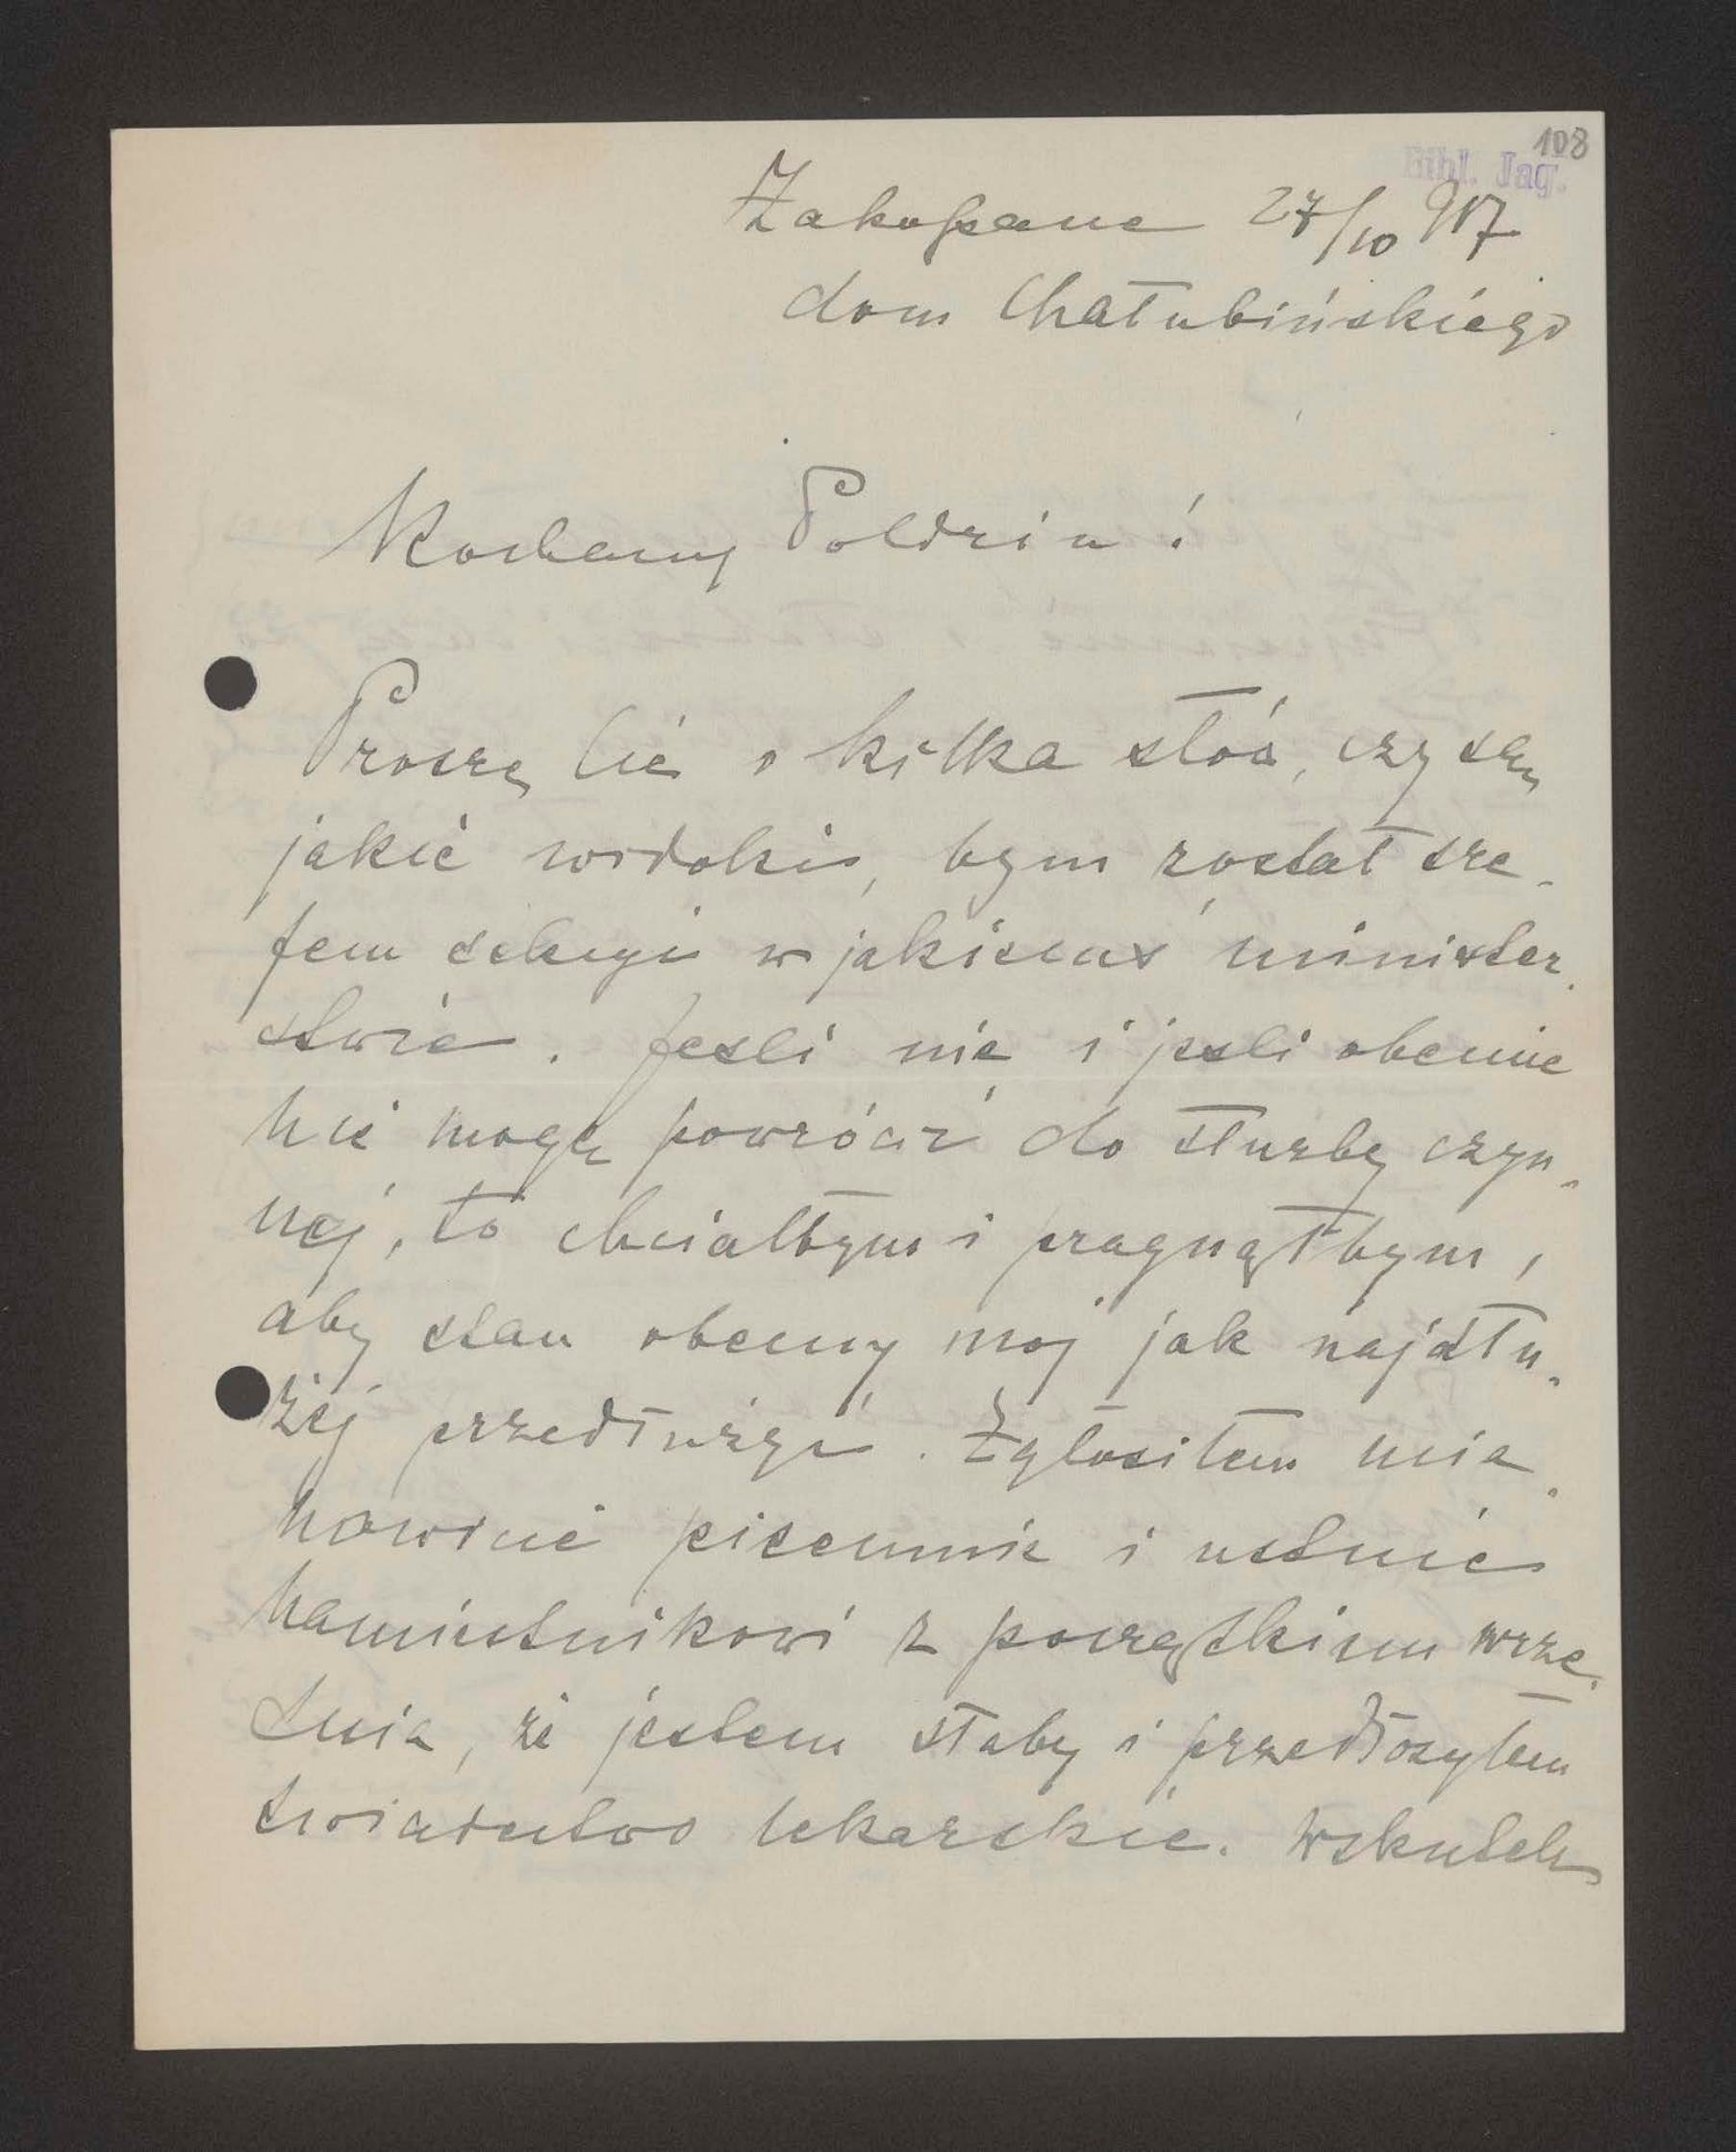 108
Bibl. Jag.
Zakopane 27/10 917
dom Chałubińskiego
Kochany Poldziu!
Proszę Cię o kilka słów, czy są
jakie widoki, bym został sze-
fem sekcyi w jakiemś minister-
stwie. Jeśli nie i jeśli obecnie
nie mogę powrócić do służby czyn-
nej, to chciałbym i pragnąłbym,
aby stan obecny mój jak najdłu-
żej przedłużyć. Zgłosiłem mia-
nowicie pisemnie i ustnie
Namiestnikowi z początkiem wrze-
śnia, że jestem słaby i przedłożyłem
świadectwo lekarskie. Wskutek